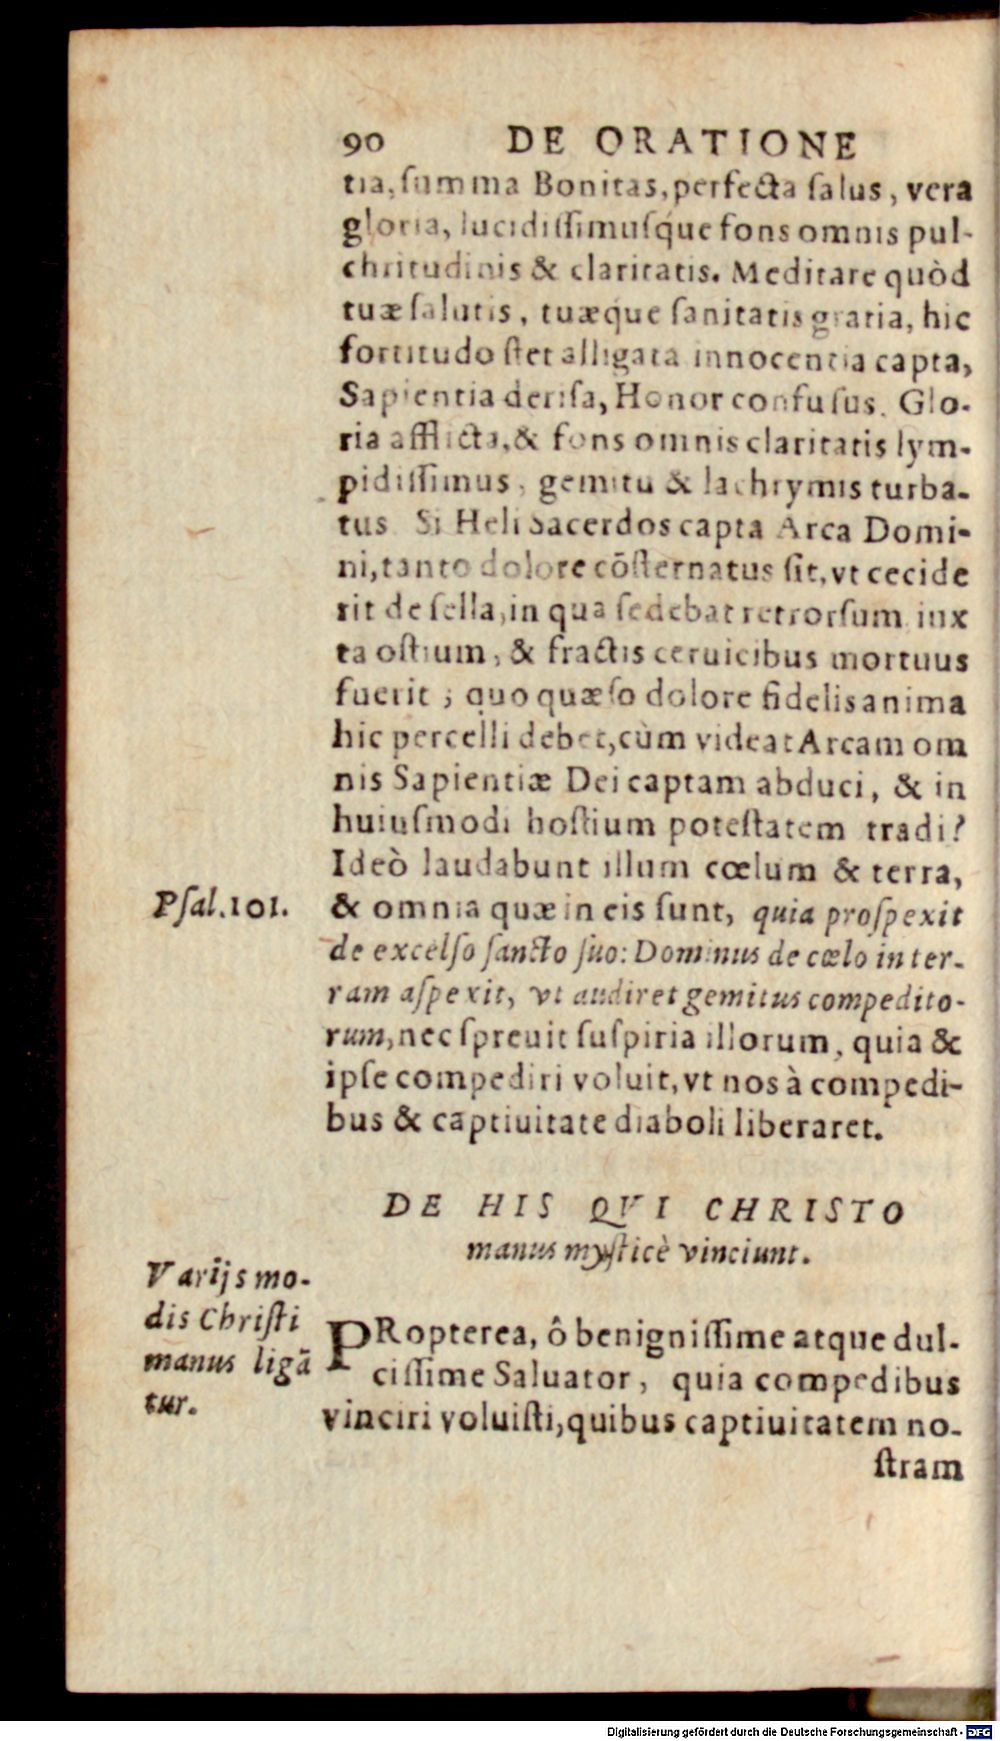 90 DE ORATIONE
tia, ſumma Bonitas, perfecta ſalus, vera
gloria, lucidiſſimuſq́ue fons omnis pul-
chritudinis & claritatis. Meditare quòd
tuæ ſalutis, tuæq́ue ſanitatis gratia, hic
fortitudo ſtet alligata innocentia capta,
Sapientia deriſa, Honor confuſus. Glo-
ria afflicta, & fons omnis claritatis lym-
pidiſſimus, gemitu & lachrymis turba-
tus. Si Heli Sacerdos capta Arca Domi-
ni, tanto dolore cõſternatus ſit, vt cecide
rit de ſella, in qua ſedebat retrorſum iux
ta oſtium, & fractis ceruicibus mortuus
fuerit; quo quæſo dolore fidelis anima
hic percelli debet, cùm videat Arcam om
nis Sapientiæ Dei captam abduci, & in
huiuſmodi hoſtium poteſtatem tradi?
Ideò laudabunt illum cœlum & terra,
Pſal.101.
& omnia quæ in eis ſunt, quia proſpexit
de excelſo ſancto ſuo: Dominus de cœlo in ter-
ram aſpexit, vt audiret gemitus compedito-
rum, nec ſpreuit ſuſpiria illorum, quia &
ipſe compediri voluit, vt nos à compedi-
bus & captiuitate diaboli liberaret.
DE HIS QVI CHRISTO
manus myſticè vinciunt.
Varijs mo-
dis Chriſti
manus ligã
tur.
PRopterea, ô benigniſſime atque dul-
ciſſime Saluator, quia compedibus
vinciri voluiſti, quibus captiuitatem no-
ſtram
Digitalisierung gefördert durch die Deutsche Forschungsgemeinschaft - DFG